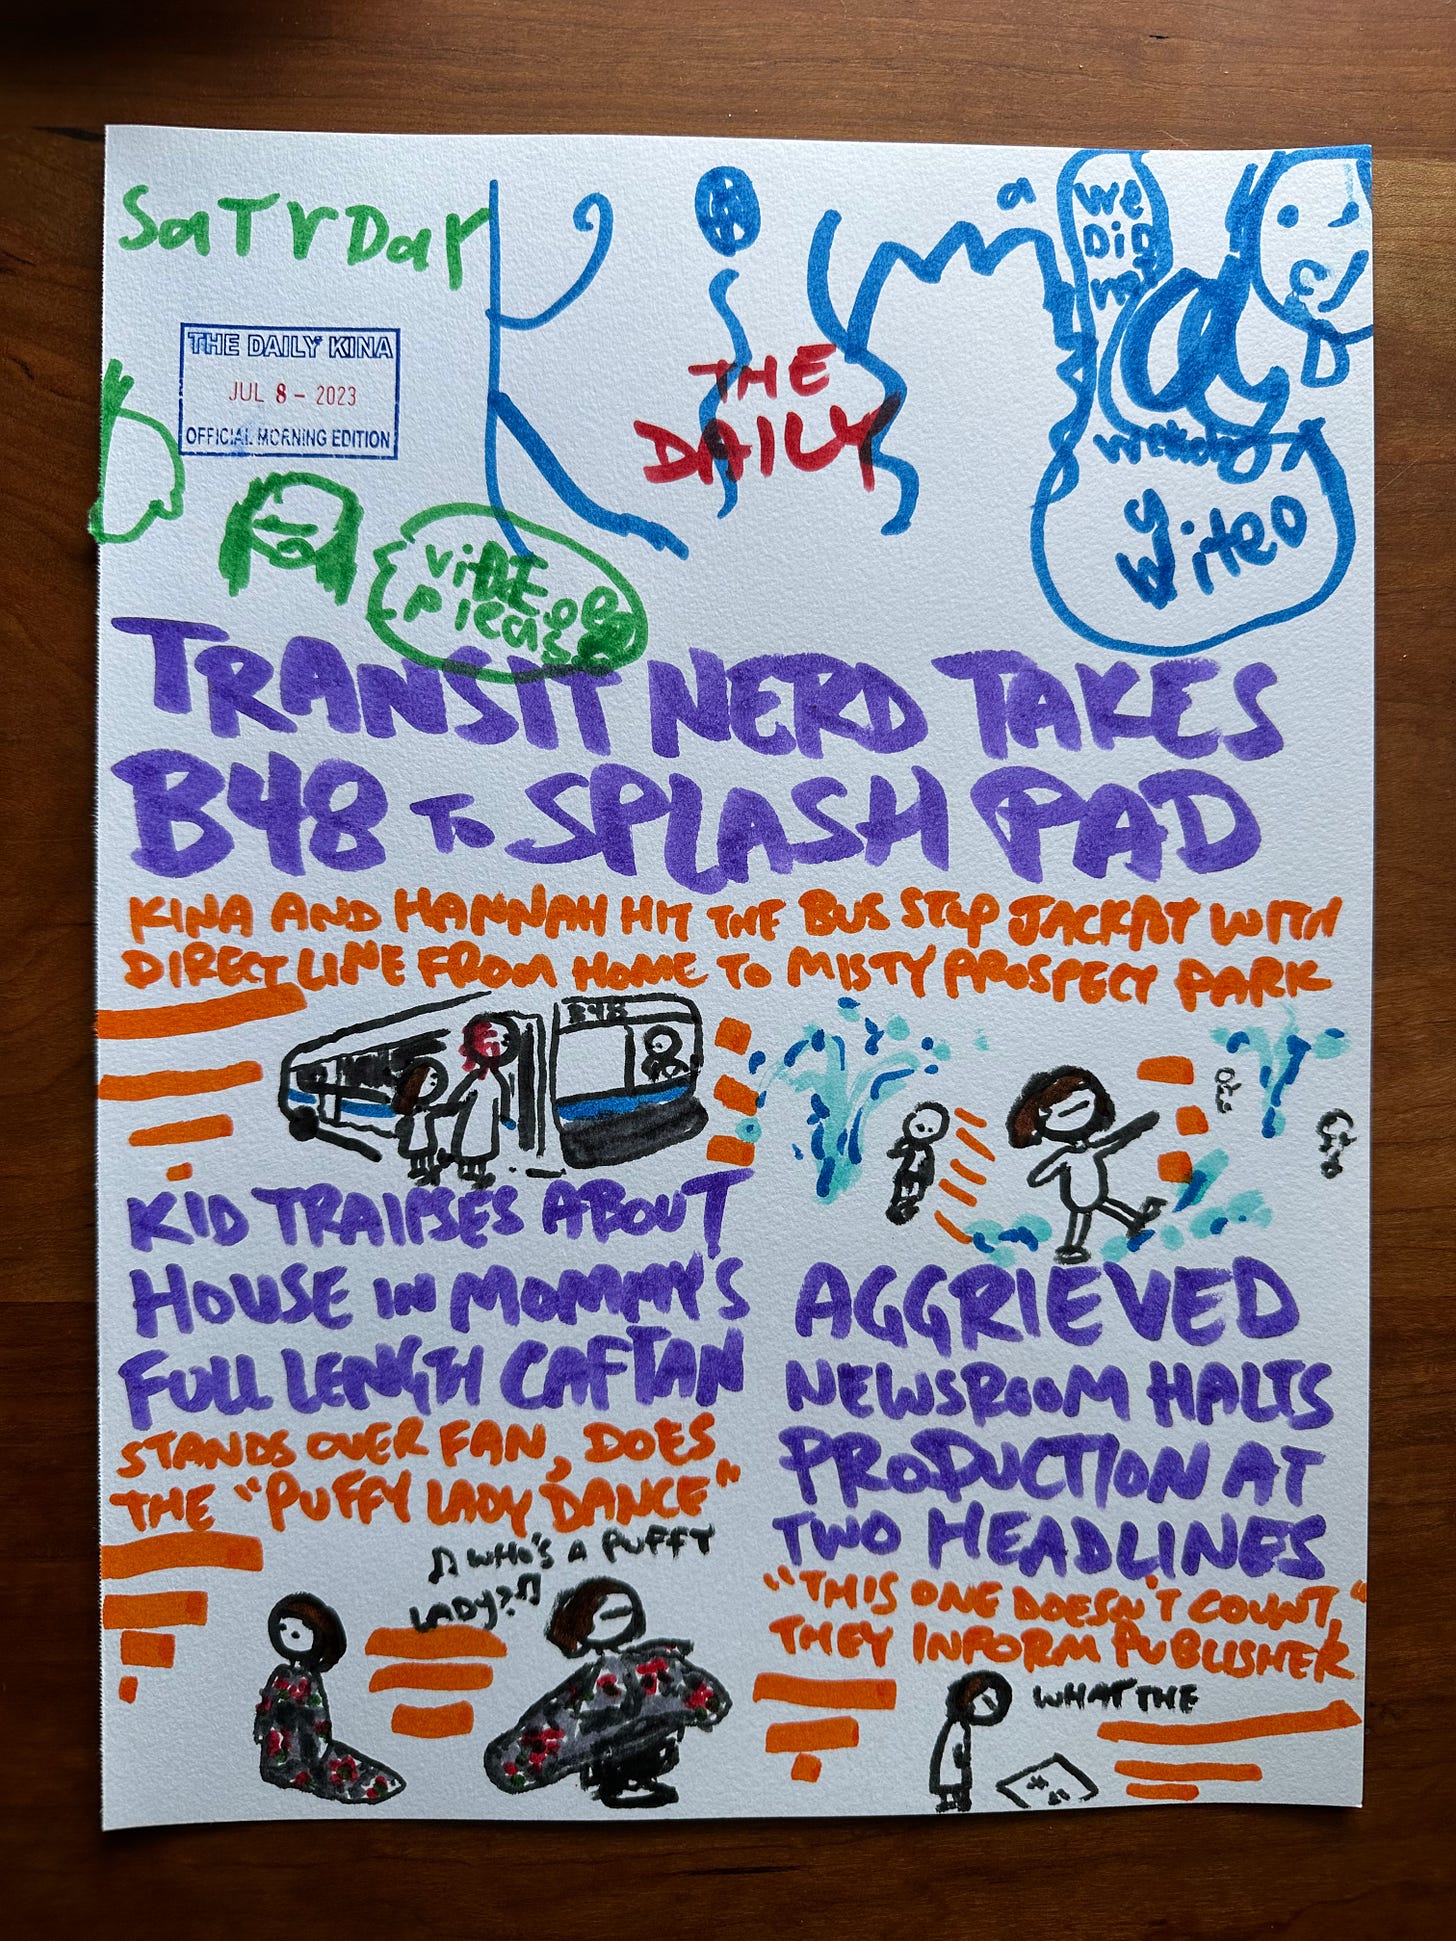 SaTrDay
THE DAILY KINA
JUL 8 - 2023
OFFICIAL MORNING EDITION
Kina
THE
DAILY
a
we
Dig
TRANSIT NERD TAKES
B48 TO SPLASH PAD
KINA AND HANNAH HIT THE BUS STOP JACKPOT WITH
DIRECT LINE FROM HOME TO MISTY PROSPECT PARK
B48
KID TRAIPSES ABOUT
HOUSE IN MOMMY'S
FULL LENGTH CAFTAN
STANDS OVER FAN, DOES
THE "PUFFY LADY DANCE"
♫ WHO'S A PUFFY
LADY? ♫
AGGRIEVED
NEWSROOM HALTS
PRODUCTION AT
TWO HEADLINES
"THIS ONE DOESN'T COUNT,"
THEY INFORM PUBLISHER
WHAT THE